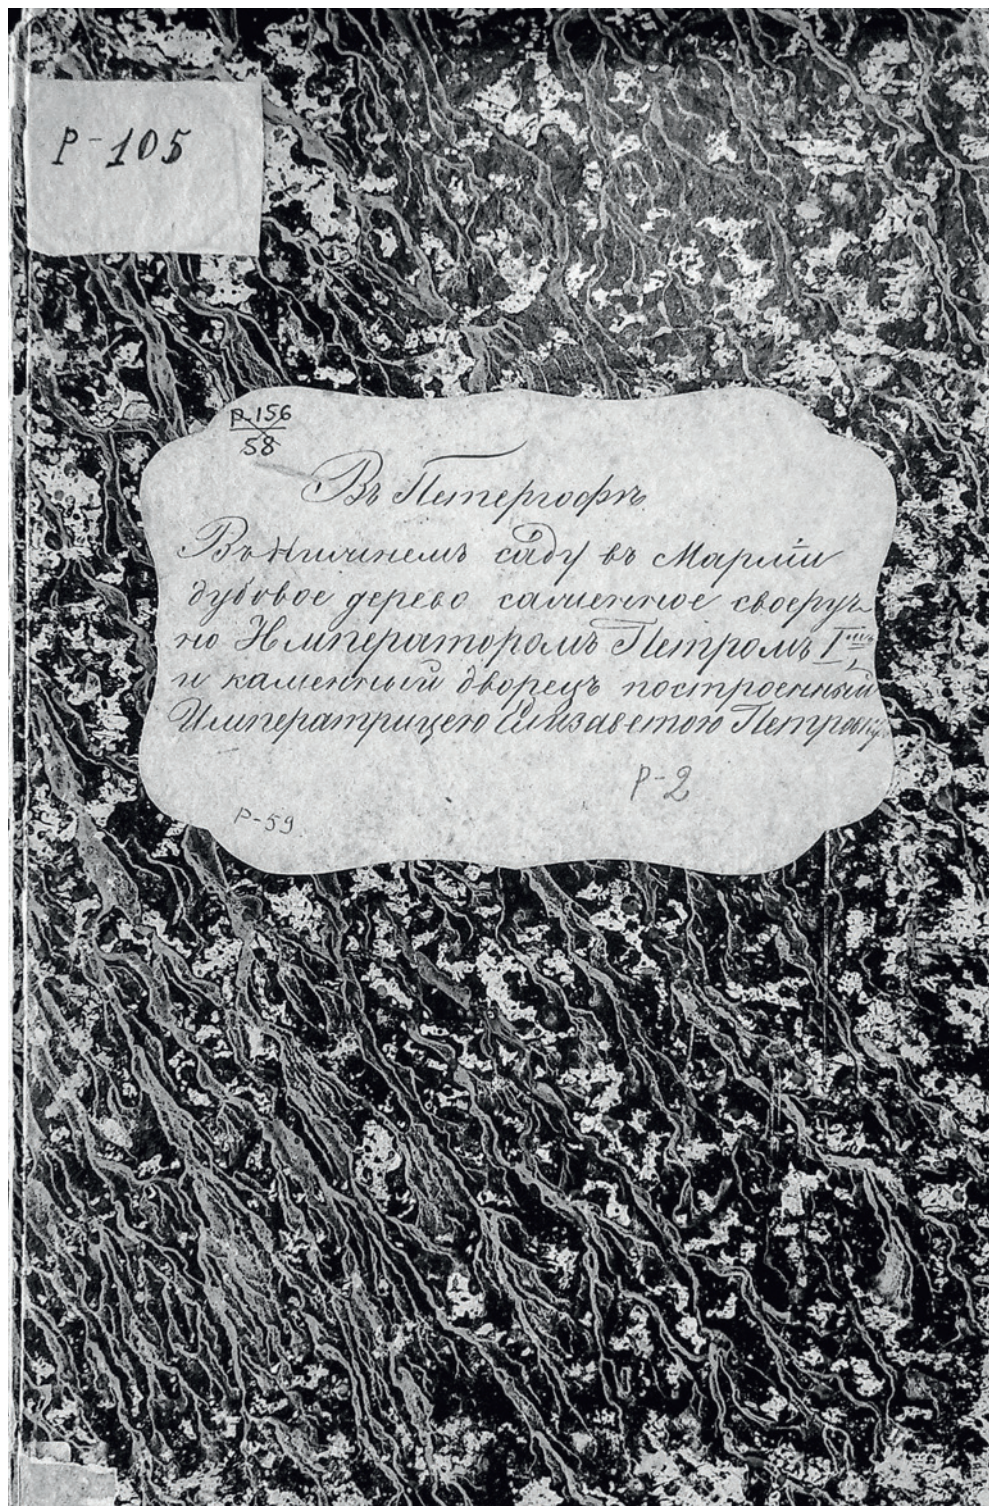 Р-105
Р-156
58
Въ Петергофѣ.
Въ Нижнемъ саду въ Марли
дубовое дерево саженное своеруч-
но Императоромъ Петромъ I мъ,
и каменный дворецъ построенный
Императрицею Елизаветою Петровну
Р-2
Р-59